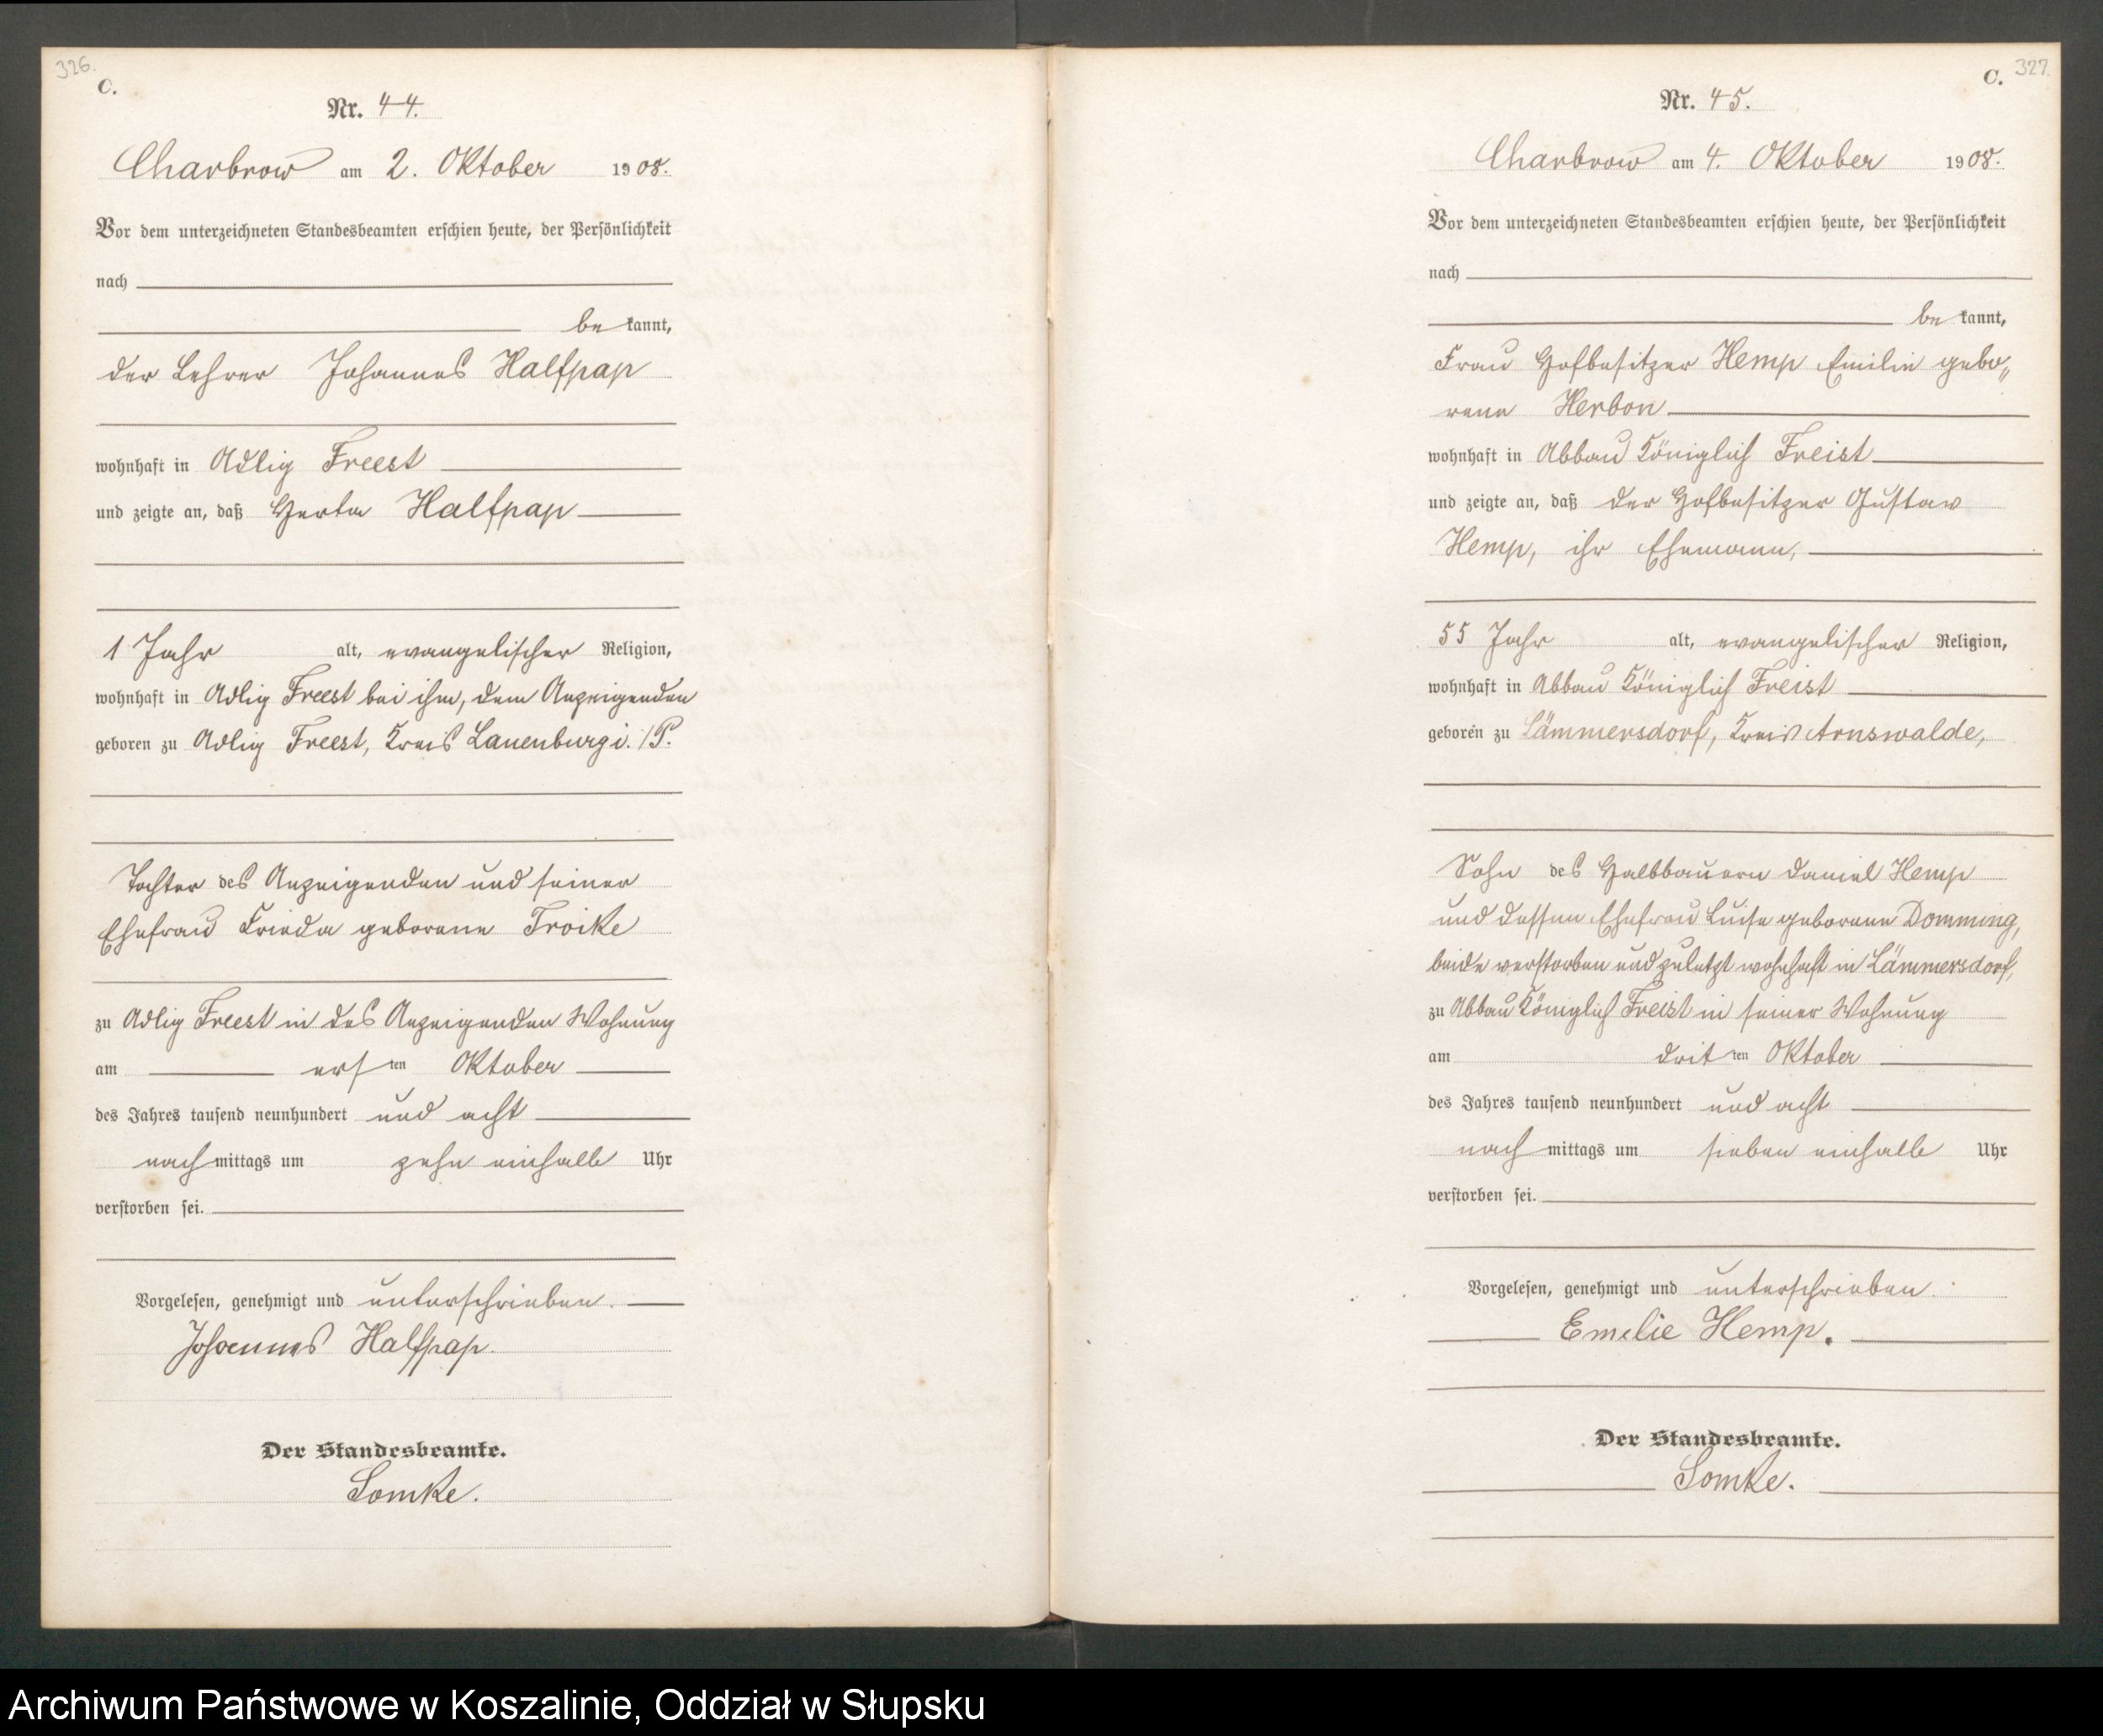 326.
C.
Nr. 44.
Charbrow am 2. Oktober 1908.
Vor dem unterzeichneten Standesbeamten erschien heute, der Persönlichkeit
nach
be kannt,
der Lehrer Johannes Halfpap
wohnhaft in Adlig Freest
und zeigte an, daß Herta Halfpap
1 Jahr alt, evangelischer Religion,
wohnhaft in Adlig Freest bei ihm, dem Anzeigenden
geboren zu Adlig Freest, Kreis Lauenburg i./P.
Tochter des Anzeigenden und seiner
Ehefrau Frieda geborene Troike
zu Adlig Freest in des Anzeigenden Wohnung
am ersten Oktober
des Jahres tausend neunhundert und acht
nach mittags um zehn einhalb Uhr
verstorben sei.
Vorgelesen, genehmigt und unterschrieben.
Johannes Halfpap.
Der Standesbeamte.
Lomke.
327.
C.
Nr. 45.
Charbrow am 4. Oktober 1908.
Vor dem unterzeichneten Standesbeamten erschien heute, der Persönlichkeit
nach
be kannt,
Frau Hofbesitzer Hemp Emilie gebo„
rene Herbon
wohnhaft in Abbau Königlich Freist
und zeigte an, daß der Hofbesitzer Gustav
Hemp, ihr Ehemann,
55 Jahr alt, evangelischer Religion,
wohnhaft in Abbau Königlich Freist
geboren zu Lämmersdorf, Kreis Arnswalde,
Sohn des Halbbauern Daniel Hemp
und dessen Ehefrau Luise geborene Domming,
beide verstorben und zuletzt wohnhaft in Lämmersdorf,
zu Abbau Königlich Freist in seiner Wohnung
am dritten Oktober
des Jahres tausend neunhundert und acht
nach mittags um sieben einhalb Uhr
verstorben sei.
Vorgelesen, genehmigt und unterschrieben.
Emelie Hemp.
Der Standesbeamte.
Lomke.
Archiwum Państwowe w Koszalinie, Oddział w Słupsku